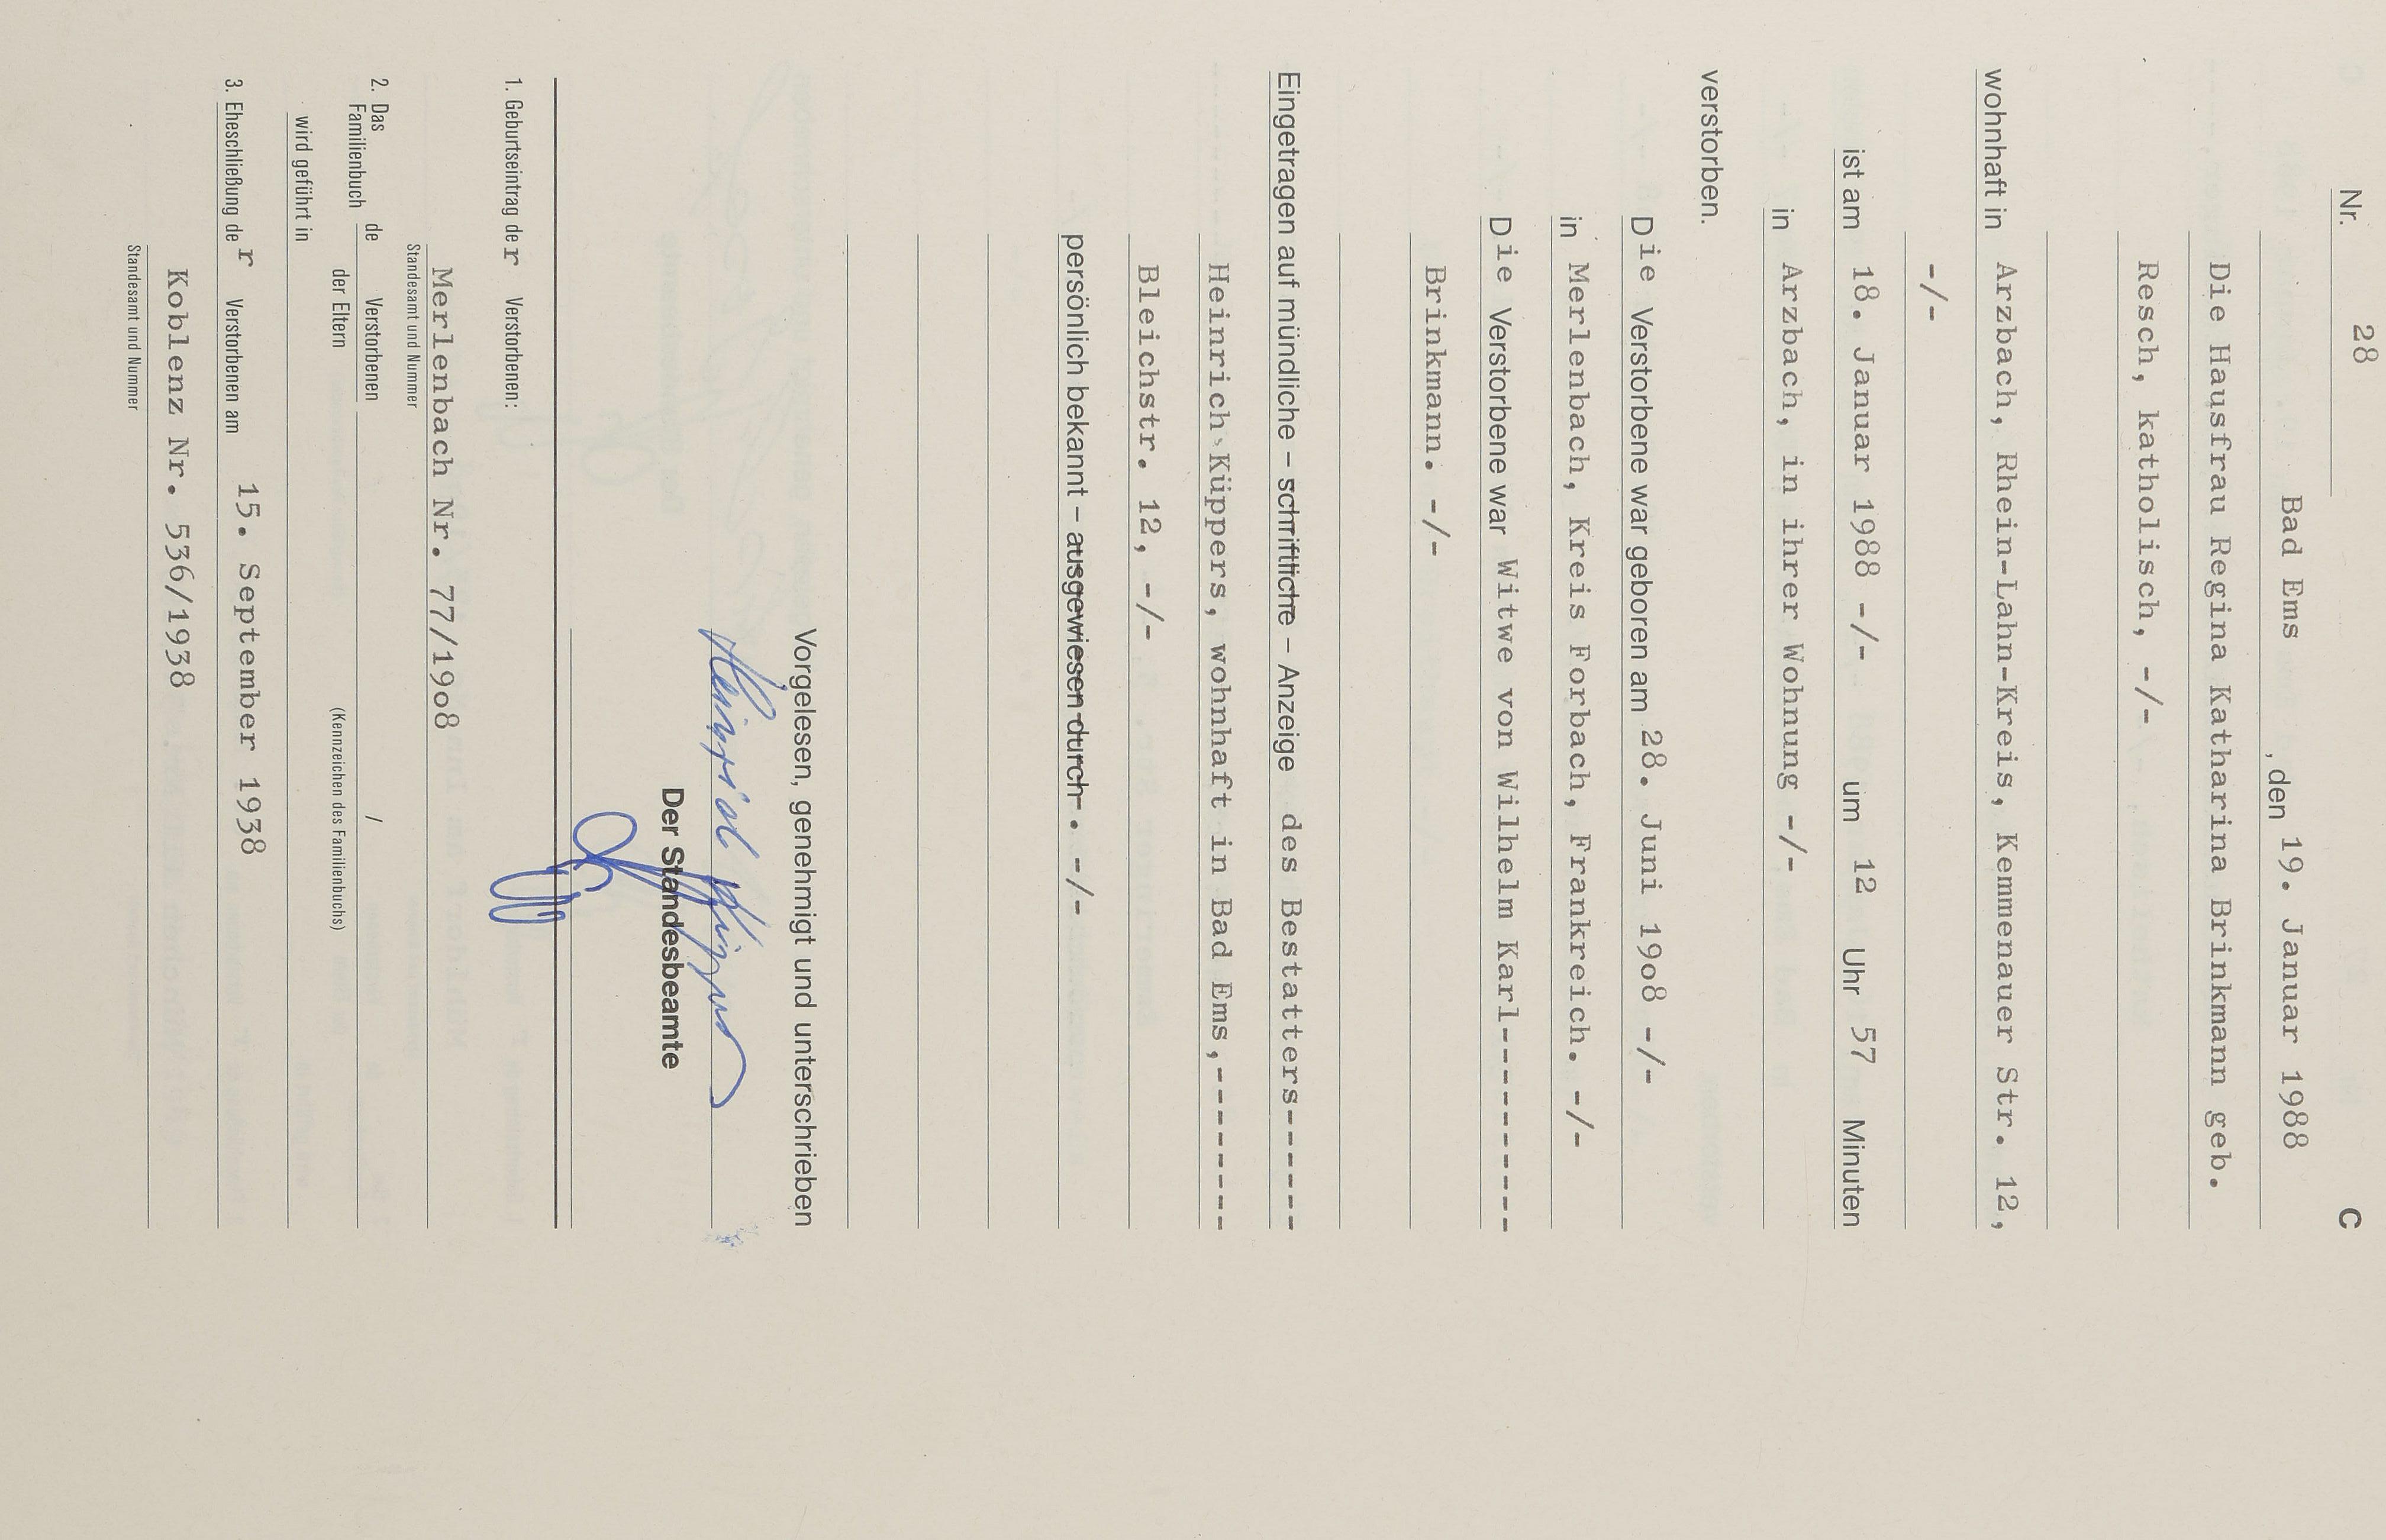 Nr. 28 C
Bad Ems , den 19. Januar 1988
Die Hausfrau Regina Katharina Brinkmann geb.
Resch, katholisch, -/-
wohnhaft in Arzbach, Rhein-Lahn-Kreis, Kemmenauer Str. 12,
-/-
ist am 18. Januar 1988 -/- um 12 Uhr 57 Minuten
in Arzbach, in ihrer Wohnung -/-
verstorben.
Die Verstorbene war geboren am 28. Juni 19o8 -/-
in Merlenbach, Kreis Forbach, Frankreich. -/-
Die Verstorbene war Witwe von Wilhelm Karl---------
Brinkmann. -/-
Eingetragen auf mündliche – schriftliche – Anzeige des Bestatters------
Heinrich Küppers, wohnhaft in Bad Ems,--------
Bleichstr. 12, -/-
persönlich bekannt – ausgewiesen durch . -/-
Vorgelesen, genehmigt und unterschrieben
Heinrich Küppers
Der Standesbeamte
1. Geburtseintrag der Verstorbenen:
Merlenbach Nr. 77/19o8
Standesamt und Nummer
2. Das Familienbuch de Verstorbenen /
der Eltern (Kennzeichen des Familienbuchs)
wird geführt in
3. Eheschließung der Verstorbenen am 15. September 1938
Koblenz Nr. 536/1938
Standesamt und Nummer